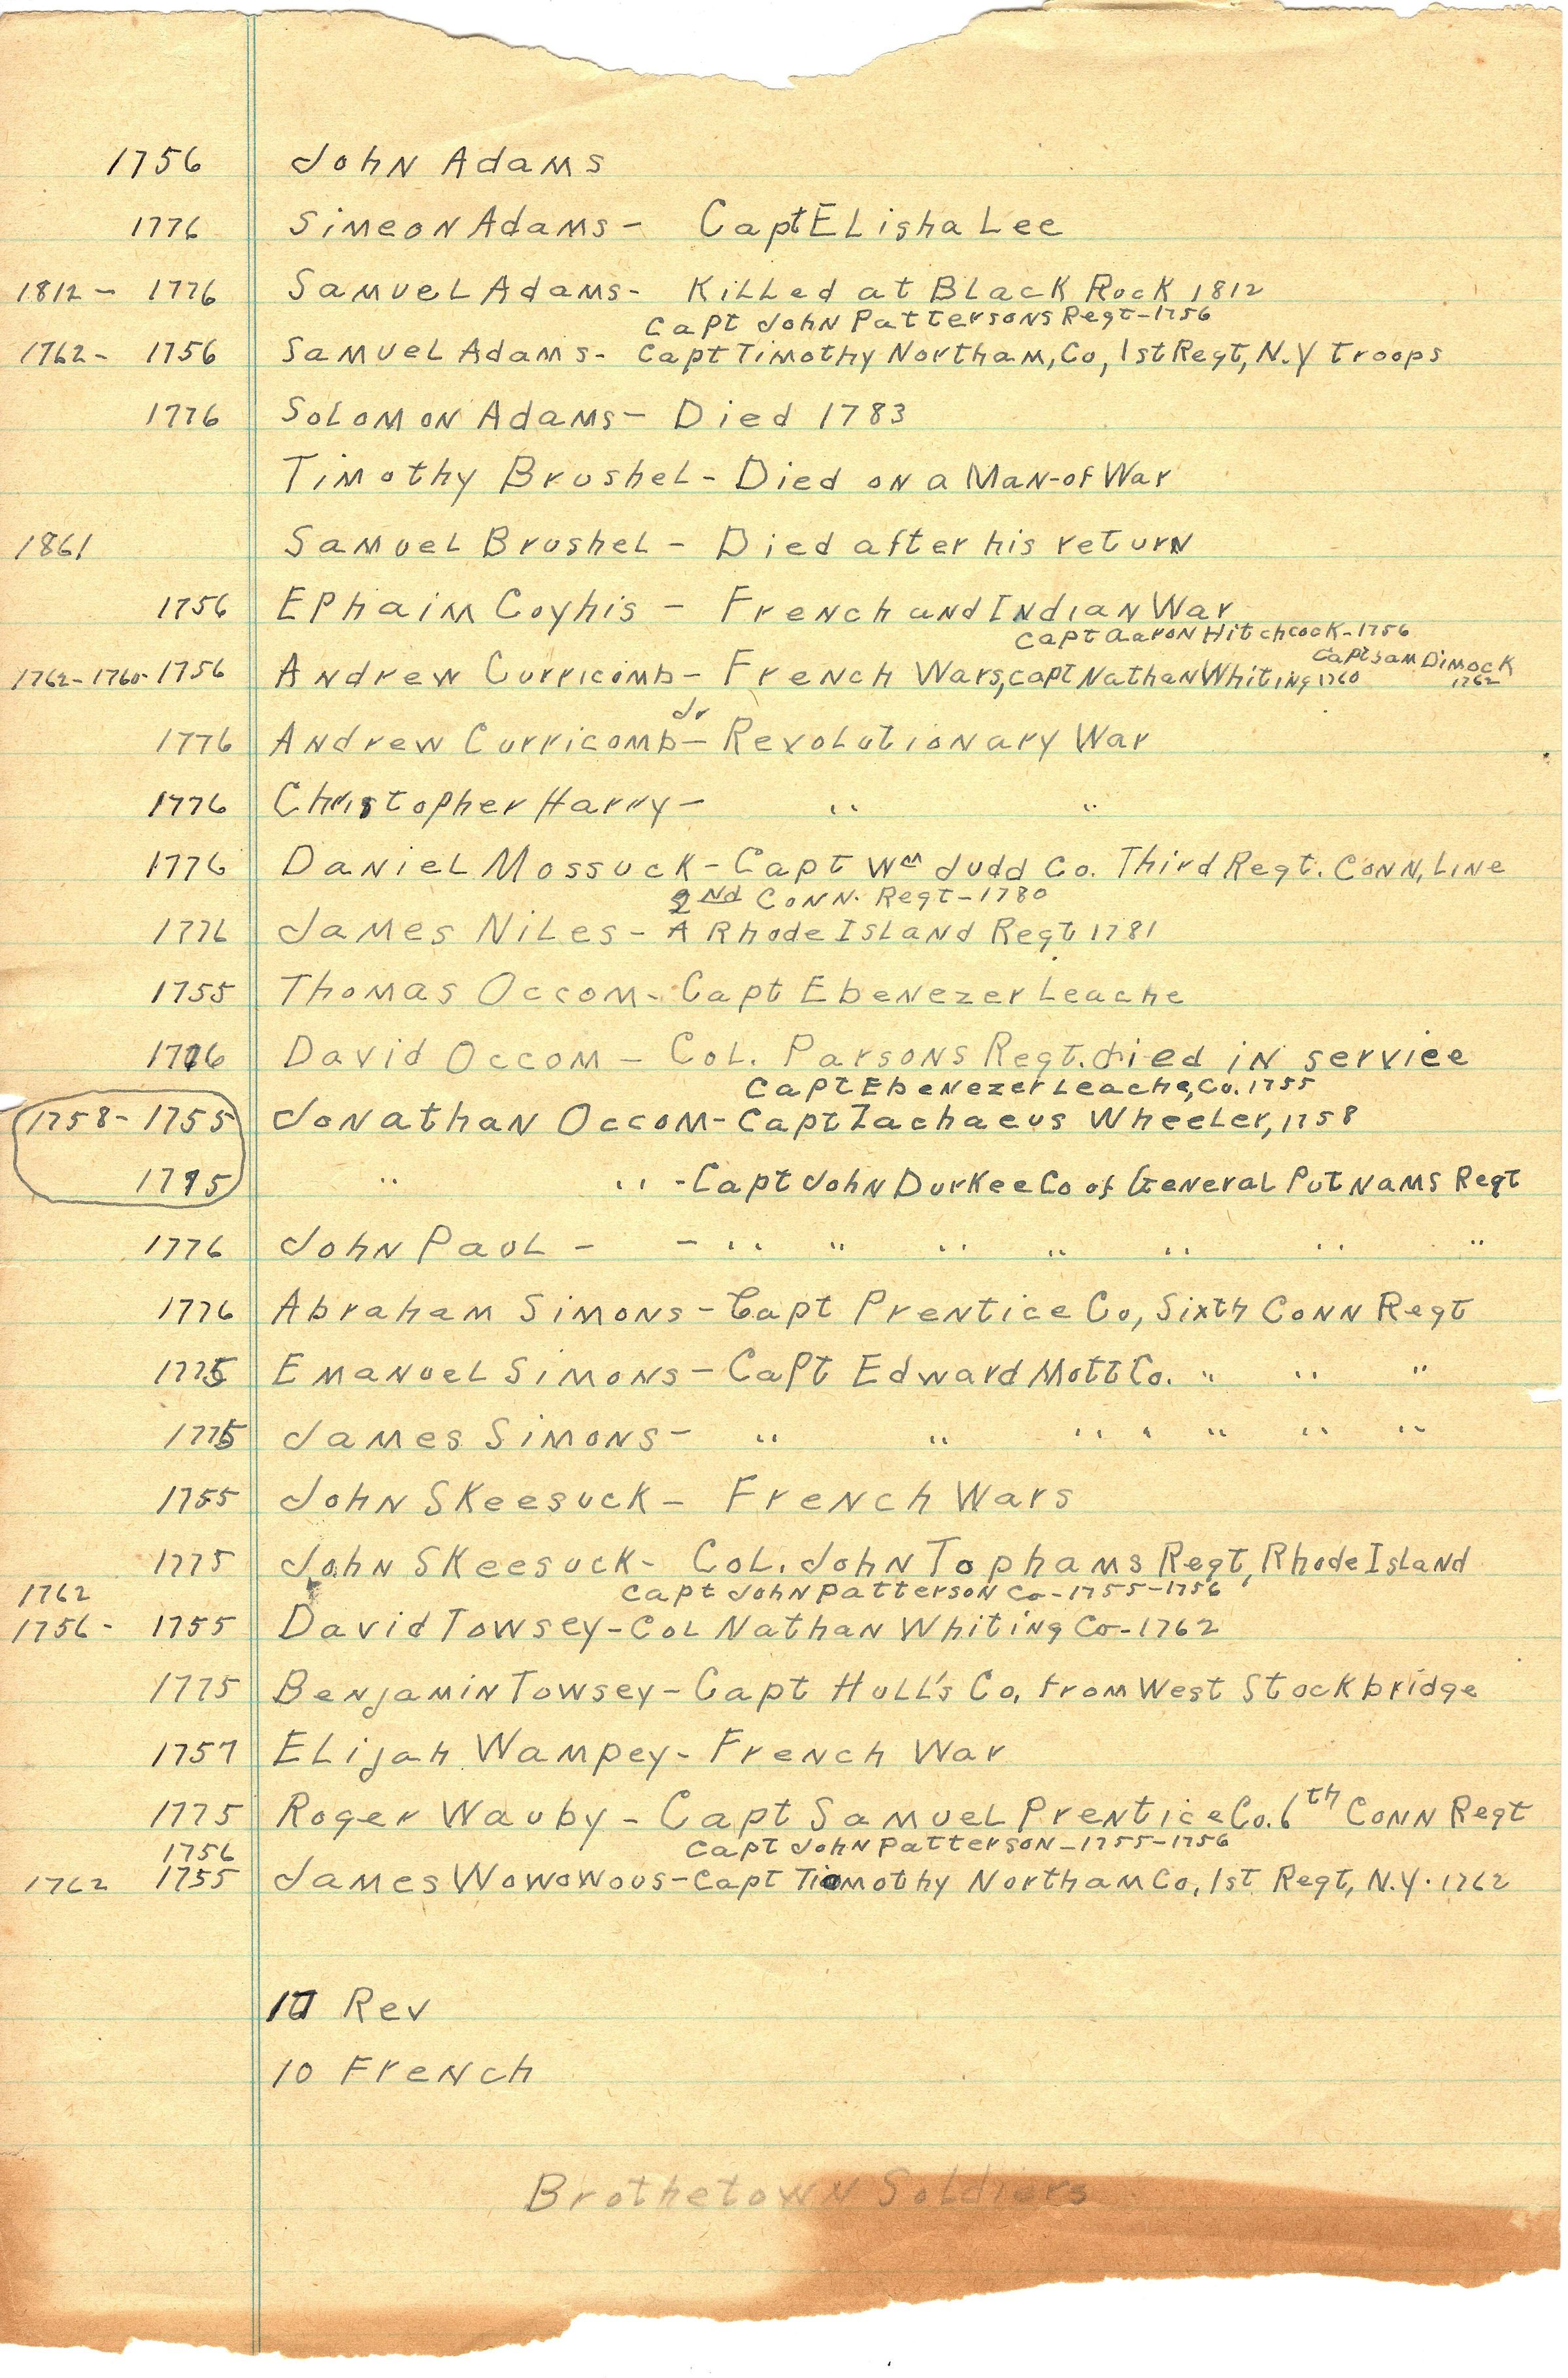 1756 John Adams
1776 Simeon Adams - Capt Elisha Lee
1812 - 1776 Samuel Adams - Killed at Black Rock 1812
Capt John Pattersons Regt - 1756
1762 - 1756 Samuel Adams - Capt Timothy Northam, Co, 1st Regt, N.Y troops
1776 Solomon Adams - Died 1783
Timothy Brushel - Died on a Man-of War
1861 Samuel Brushel - Died after his return
1756 Ephaim Coyhis - French and Indian War
Capt Aaron Hitchcock - 1756
Capt Sam Dimock
1762 - 1760 - 1756 Andrew Curricomb - French Wars, capt Nathan Whiting 1760 1762
Jr
1776 Andrew Curricomb - Revolutionary War
1776 Christopher Harry - " "
1776 Daniel Mossuck - Capt Wm Judd Co. Third Regt. Conn, Line
2nd Conn. Regt - 1780
1776 James Niles - A Rhode Island Regt 1781
1755 Thomas Occom - Capt Ebenezer Leache
1776 David Occom - Col. Parsons Regt. died in service
Capt Ebenezer Leache, Co. 1755
1758 - 1755 Jonathan Occom - Capt Zachaeus Wheeler, 1758
1775 " " - Capt John Durkee Co of General Putnams Regt
1776 John Paul - - " " " " " " "
1776 Abraham Simons - Capt Prentice Co, Sixth Conn Regt
1775 Emanuel Simons - Capt Edward Mott Co. " " "
1775 James Simons - " " " " " " "
1755 John Skeesuck - French Wars
1775 John Skeesuck - Col. John Tophams Regt, Rhode Island
1762 Capt John Patterson Co - 1755 - 1756
1756 - 1755 David Towsey - Col Nathan Whiting Co - 1762
1775 Benjamin Towsey - Capt Hull's Co, from West Stockbridge
1757 Elijah Wampey - French War
1775 Roger Wauby - Capt Samuel Prentice Co. 6th Conn Regt
1756 Capt John Patterson - 1755 - 1756
1762 1755 James Wowowous - Capt Timothy Northam Co, 1st Regt, N.Y. 1762
17 Rev
10 French
Brothetown Soldiers